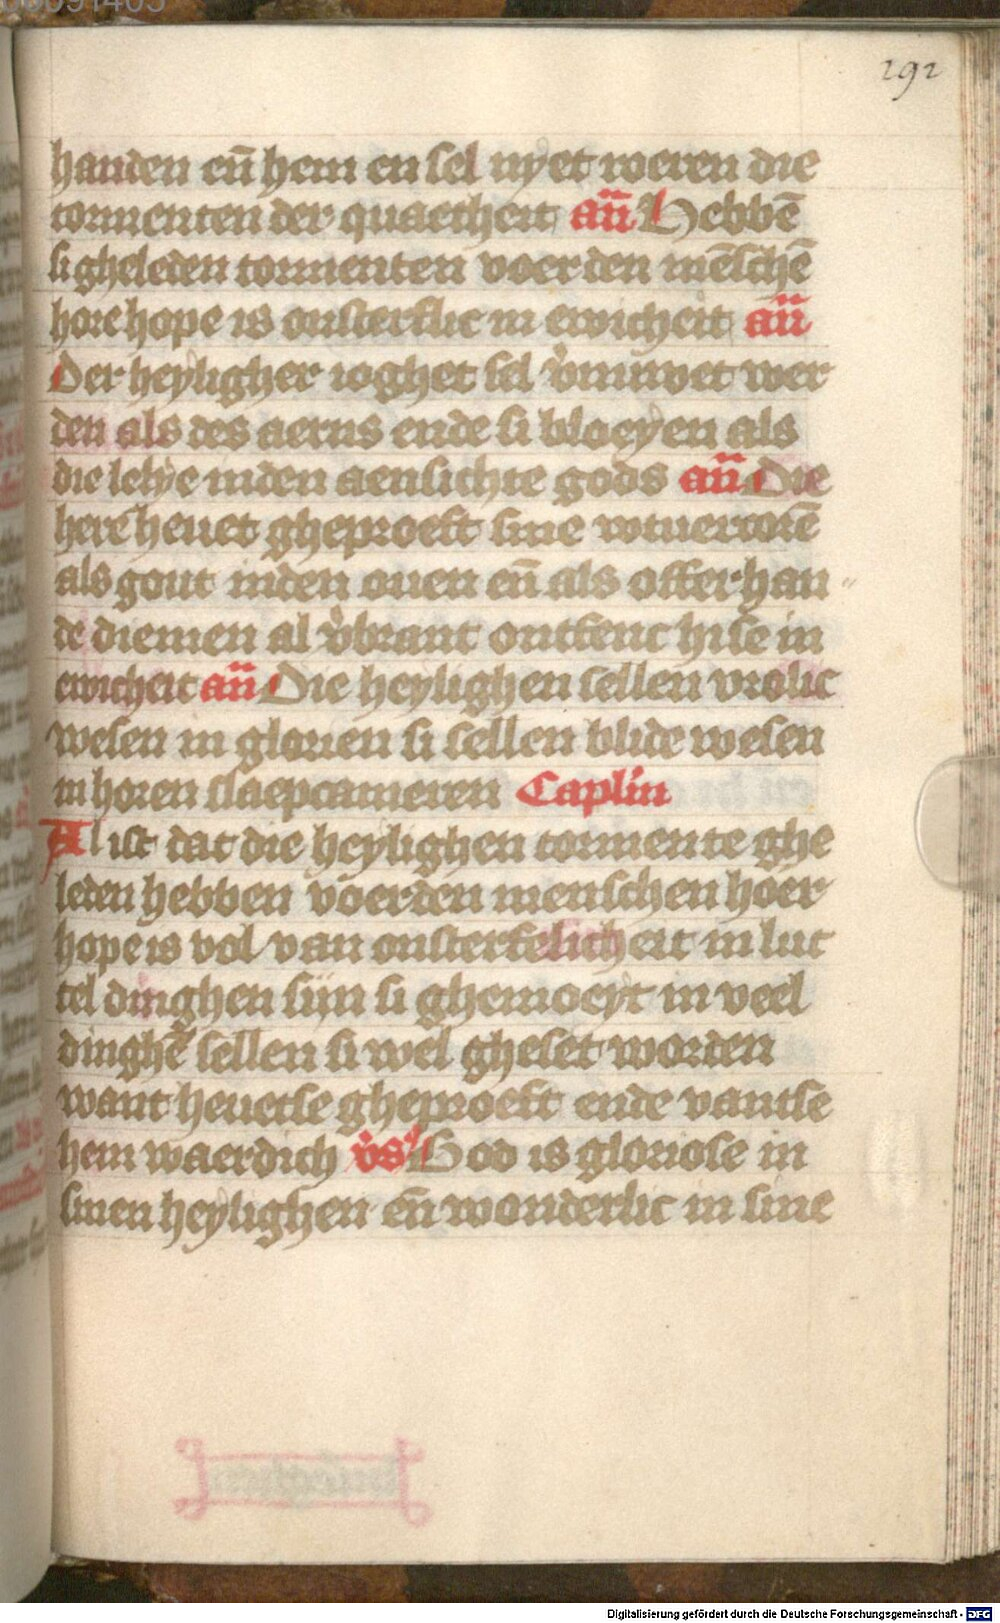 292
handen eñ hem en sel nyet roeren die
tormenten der quaetheit añ Hebbē
si gheleden tormenten voer den mēschē
hore hope is onsterflic in ewicheit añ
Der heyligher ioghet sel v̓nuwet wer
den als des aerns ende si bloeyen als
die lelye inden aensichte gods añ Die
here heuet gheproeft sine wtuercorē
als gout inden ouen eñ als offerhan
de diemen al v̓brant ontfenc hise in
ewicheit añ Die heylighen sellen vrolic
wesen in glorien si sellen blide wesen
in horen slaepcameren Caplīn
Al ist dat die heylighen tormente ghe
leden hebben voerden menschen hoer
hope is vol van onsterfelicheit in lut
tel dinghen siin si ghemoeyt in veel
dinghē sellen si wel gheset worden
want heuetse gheproeft ende vantse
hem waerdich v̓s God is gloriose in
sinen heylighen eñ wonderlic in sine
Digitalisierung gefördert durch die Deutsche Forschungsgemeinschaft - DFG